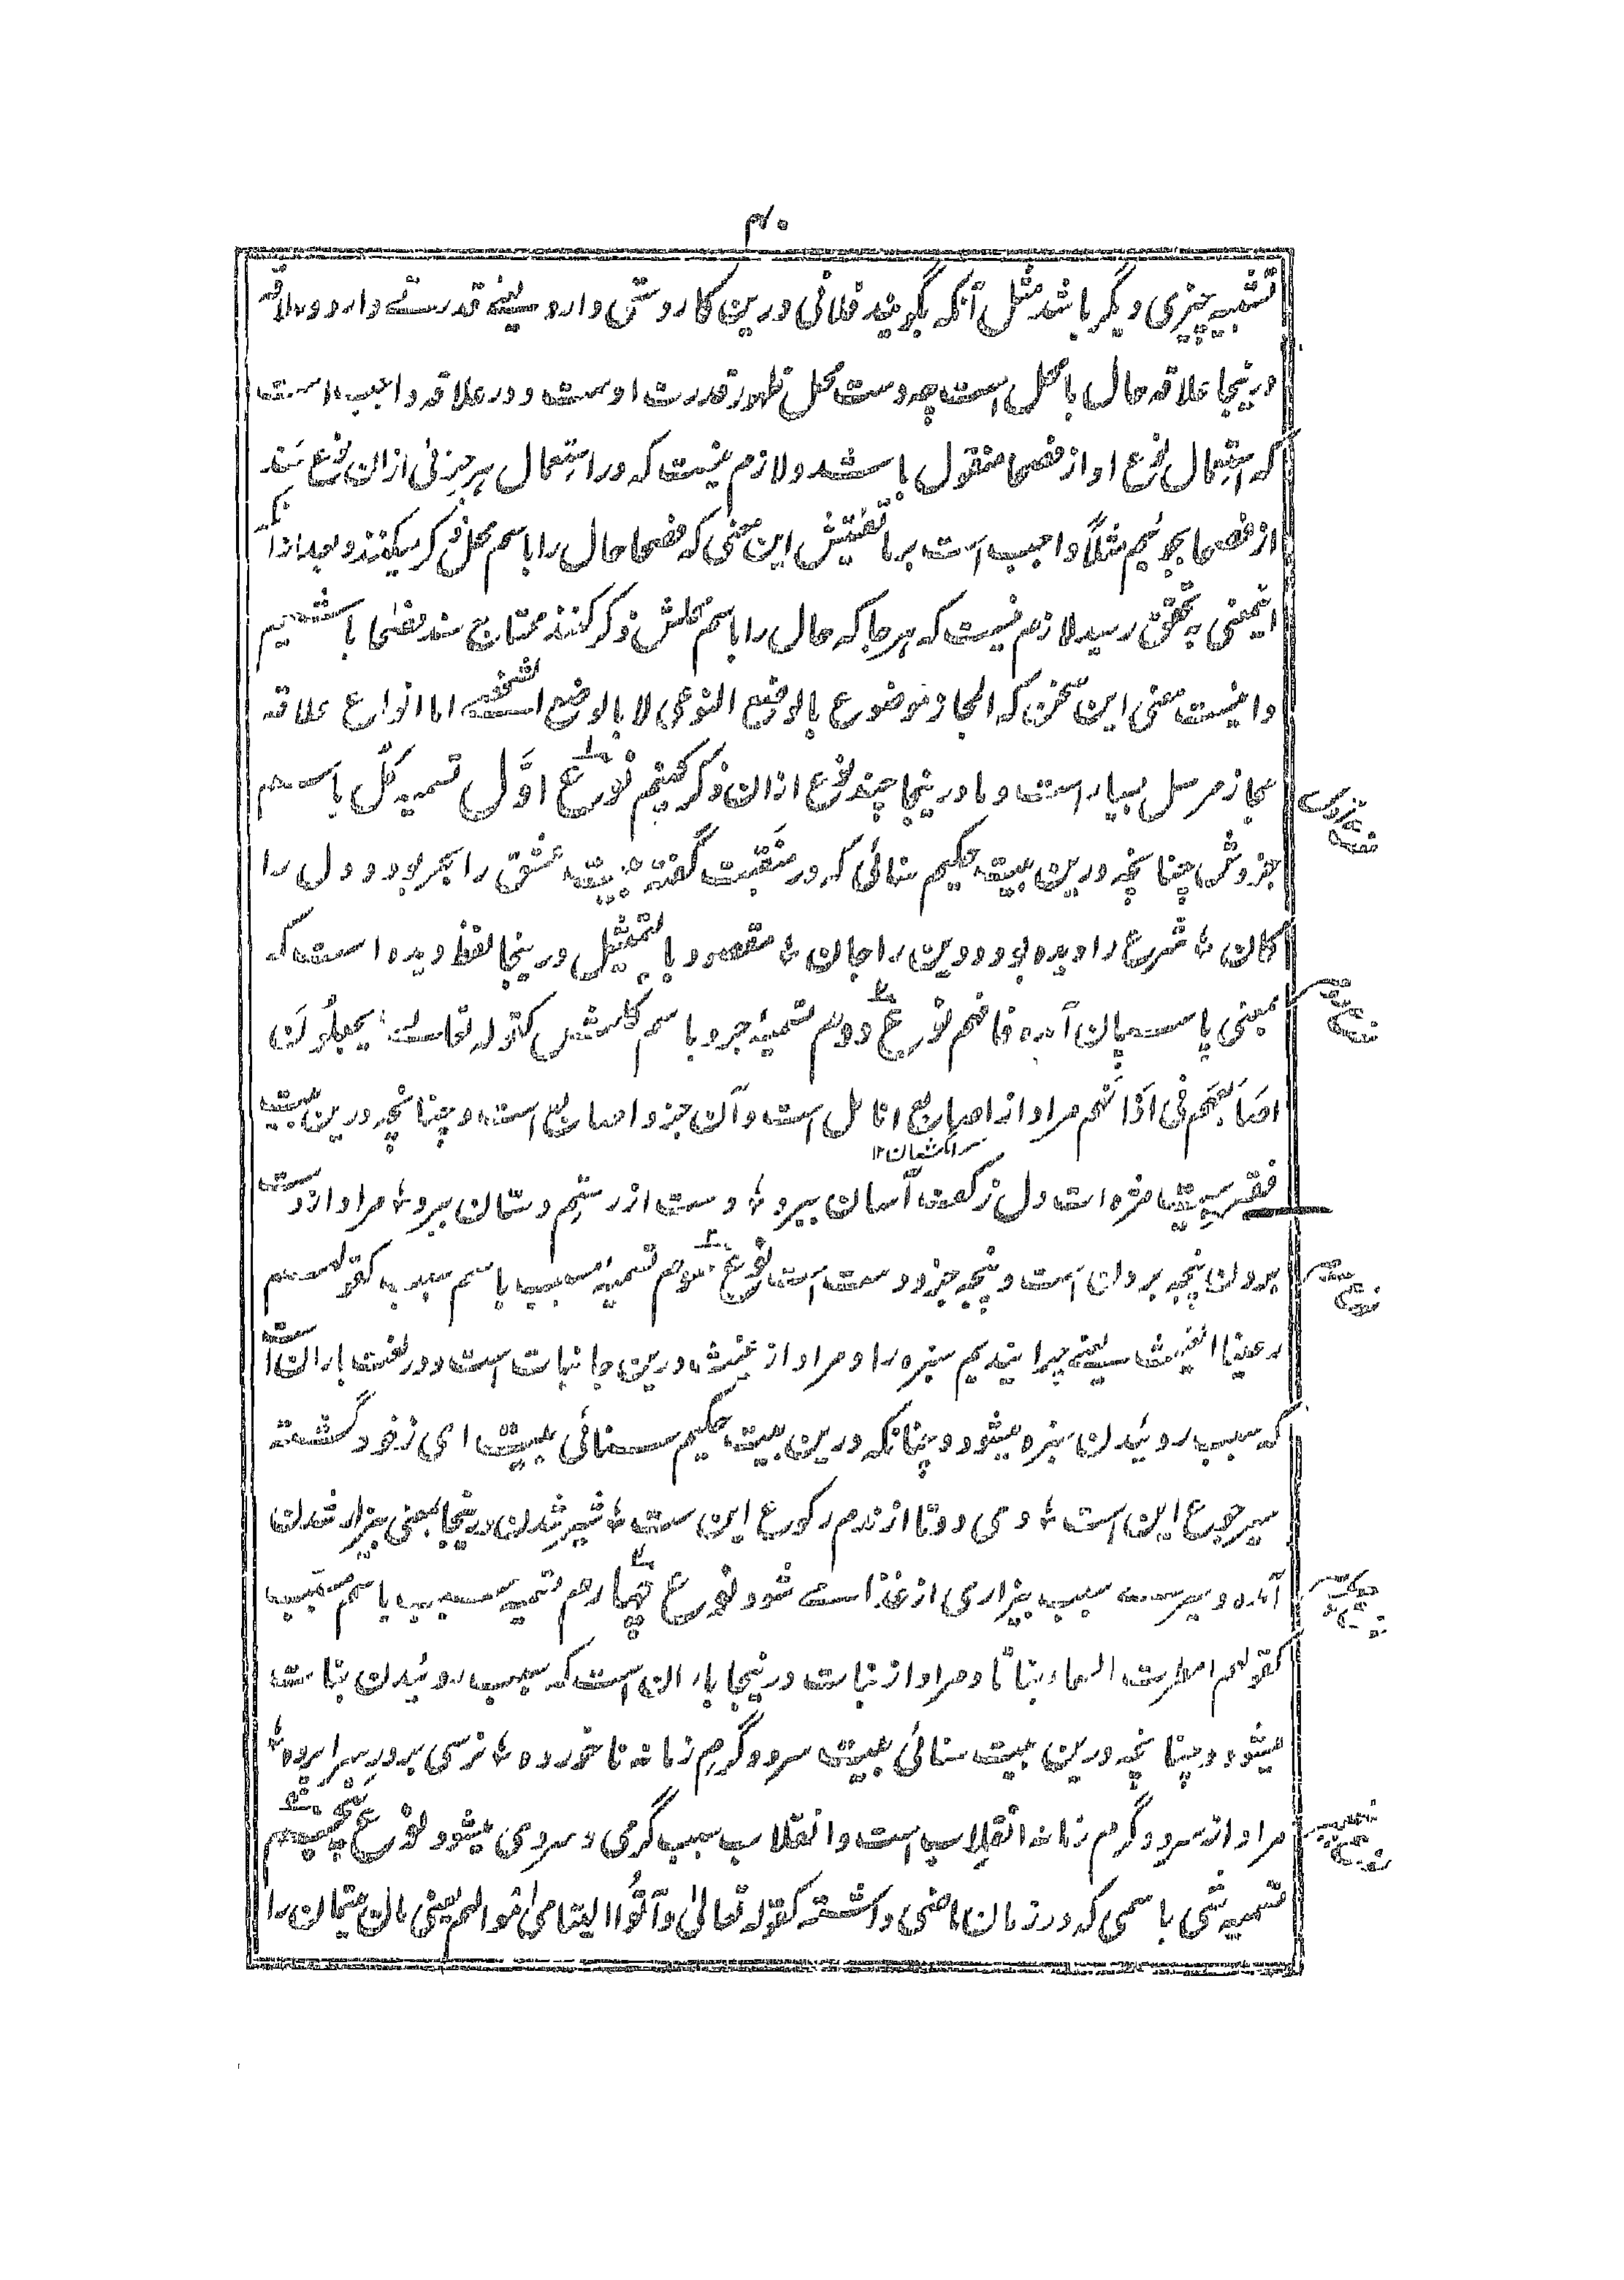 ۴۰
تشبیه چیزی دیگر باشد مثل آنکه بگویند فلانی درین کار دستی دارد یعنے قدرتے دارد و علاقہ
درینجا علاقہ حال با محل است چہ دست محل ظہور قدرت اوست و در علاقہ واجب است
کہ استعمال نوع او از فصحا منقول باشد و لازم نیست کہ در استعمال ہر جزئی ازان نوع سند
از فصحا بجوئیم مثلاً واجب است بر ما تفتیش این معنی کہ فصحا حال را باسم محل ذکر میکنند و بعد ازانکہ
اینمعنی بہ تحقق رسید لازم نیست کہ ہر جا کہ حال را باسم محلش ذکر کنند محتاج سند فصحا باشیم
و اینست معنی این سخن کہ المجاز موضوع بالوضع النوعی لا بالوضع الشخصے اما انواع علاقہ
مجاز مرسل بسیار است و ما درینجا چند نوع ازان ذکر کنیم نوع اوّل تسمیہ کل باسم
جزوش چنانچہ درین بیت حکیم سنائی کہ در منقبت گفتہ بیت عشق را بحر بود و دل را
کان ؛ شرع را دیدہ بود و دین را جان ؛ مقصود با لتمثیل درینجا لفظ دیدہ است کہ
بمعنی پاسبان آمدہ فافہم نوع دوم تسمیۂ جزو باسم کلش کقولہ تعالے یجعلُونَ
اصَابعَہم فی اٰذَانہم مراد از اصابع انامل است و آن جزو اصابع است و چنانچہ درین بیت
سر انگشتان ۱۲
فقیر بیت مژہ ات دل ز کف آسان ببرد ؛ دست از رستم دستان ببرد ؛ مراد از دست
بردن پنجہ بردان است و پنجہ جزو دست است نوع سوم تسمیۂ مسبب باسم سبب کقولہم
رعینا الغیث یعنے چرانیدیم سبزہ را و مراد از غیث درین جا نبات است و در لغت باران است
کہ سبب روئیدن سبزہ میشود و چنانکہ درین بیت حکیم سنائی بیت ای ز خود گشتہ
سیر جوع این است ؛ وی دوتا از ندم رکوع این ست ؛ سیر شدن درینجا بمعنی بیزار شدن
آمدہ و سیری سبب بیزاری از غذا مے شود نوع چہارم تسمیہ سبب باسم مسبب
کقولہم امطرت السماء نباتًا و مراد از نبات درینجا باران است کہ سبب روئیدن نبات
میشود و چنانچہ درین بیت سنائی بیت سرد و گرم زمانہ ناخوردہ ؛ نرسی بر در سراپردہ ؛
مراد از سرد و گرم زمانہ انقلاب است و انقلاب سبب گرمی و سردی میشود نوع پنجم
تسمیہ شی باسمی کہ در زمان ماضی داشتہ کقولہ تعالیٰ وآتُوا الیتامیٰ اموالہم یعنی مال یتیمان را